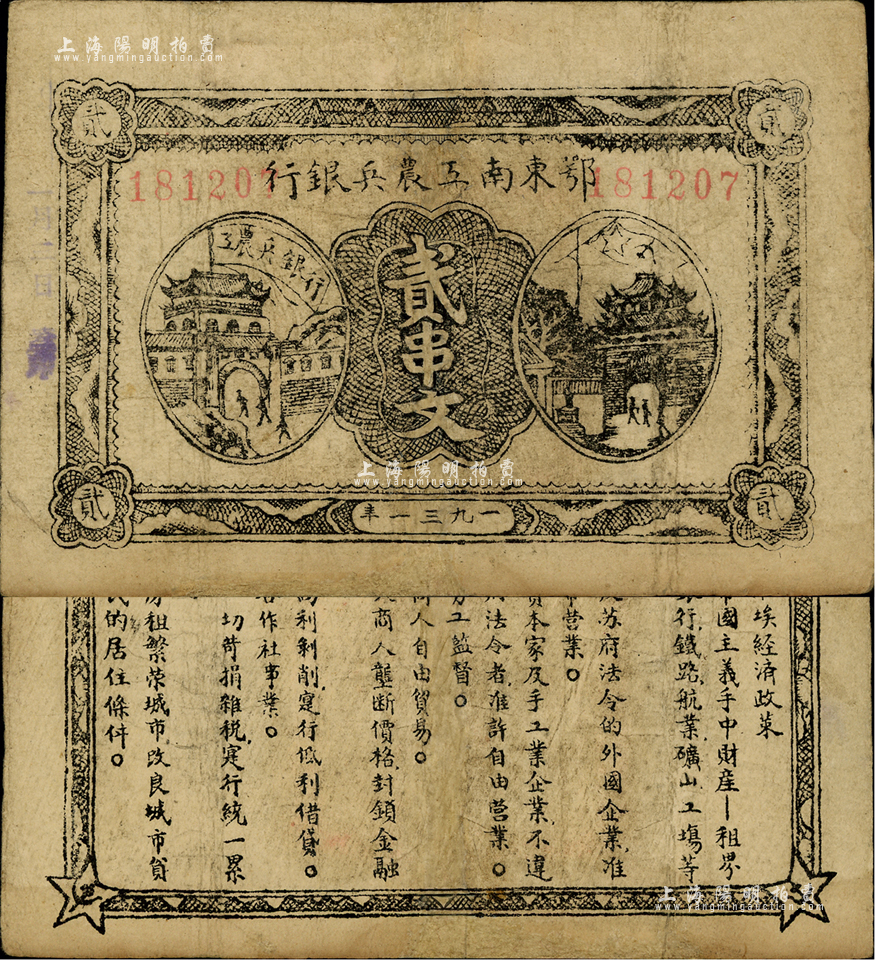 上海陽明拍賣
www.yangmingauction.com
貳
貳
鄂東南工農兵銀行
181207
181207
工農兵銀行
貳串文
上海陽明拍賣
www.yangmingauction.com
貳
貳
一九三一年
埃経済政策
國主義手中財産—租界
銀行,鐵路,航業,礦山,工塲等
苏府法令的外國企業,准
营業。
資本家及手工業企業,不違
法令者,准許自由营業。
工監督。
商人自由貿易。
商人壟断價格,封鎖金融
高利剝削,寔行低利借貸。
合作社事業。
切苛捐雜税,寔行統一累
房租繁荣城市,改良城市貧
民的居住條件。
上海陽明拍賣
www.yangmingauction.com